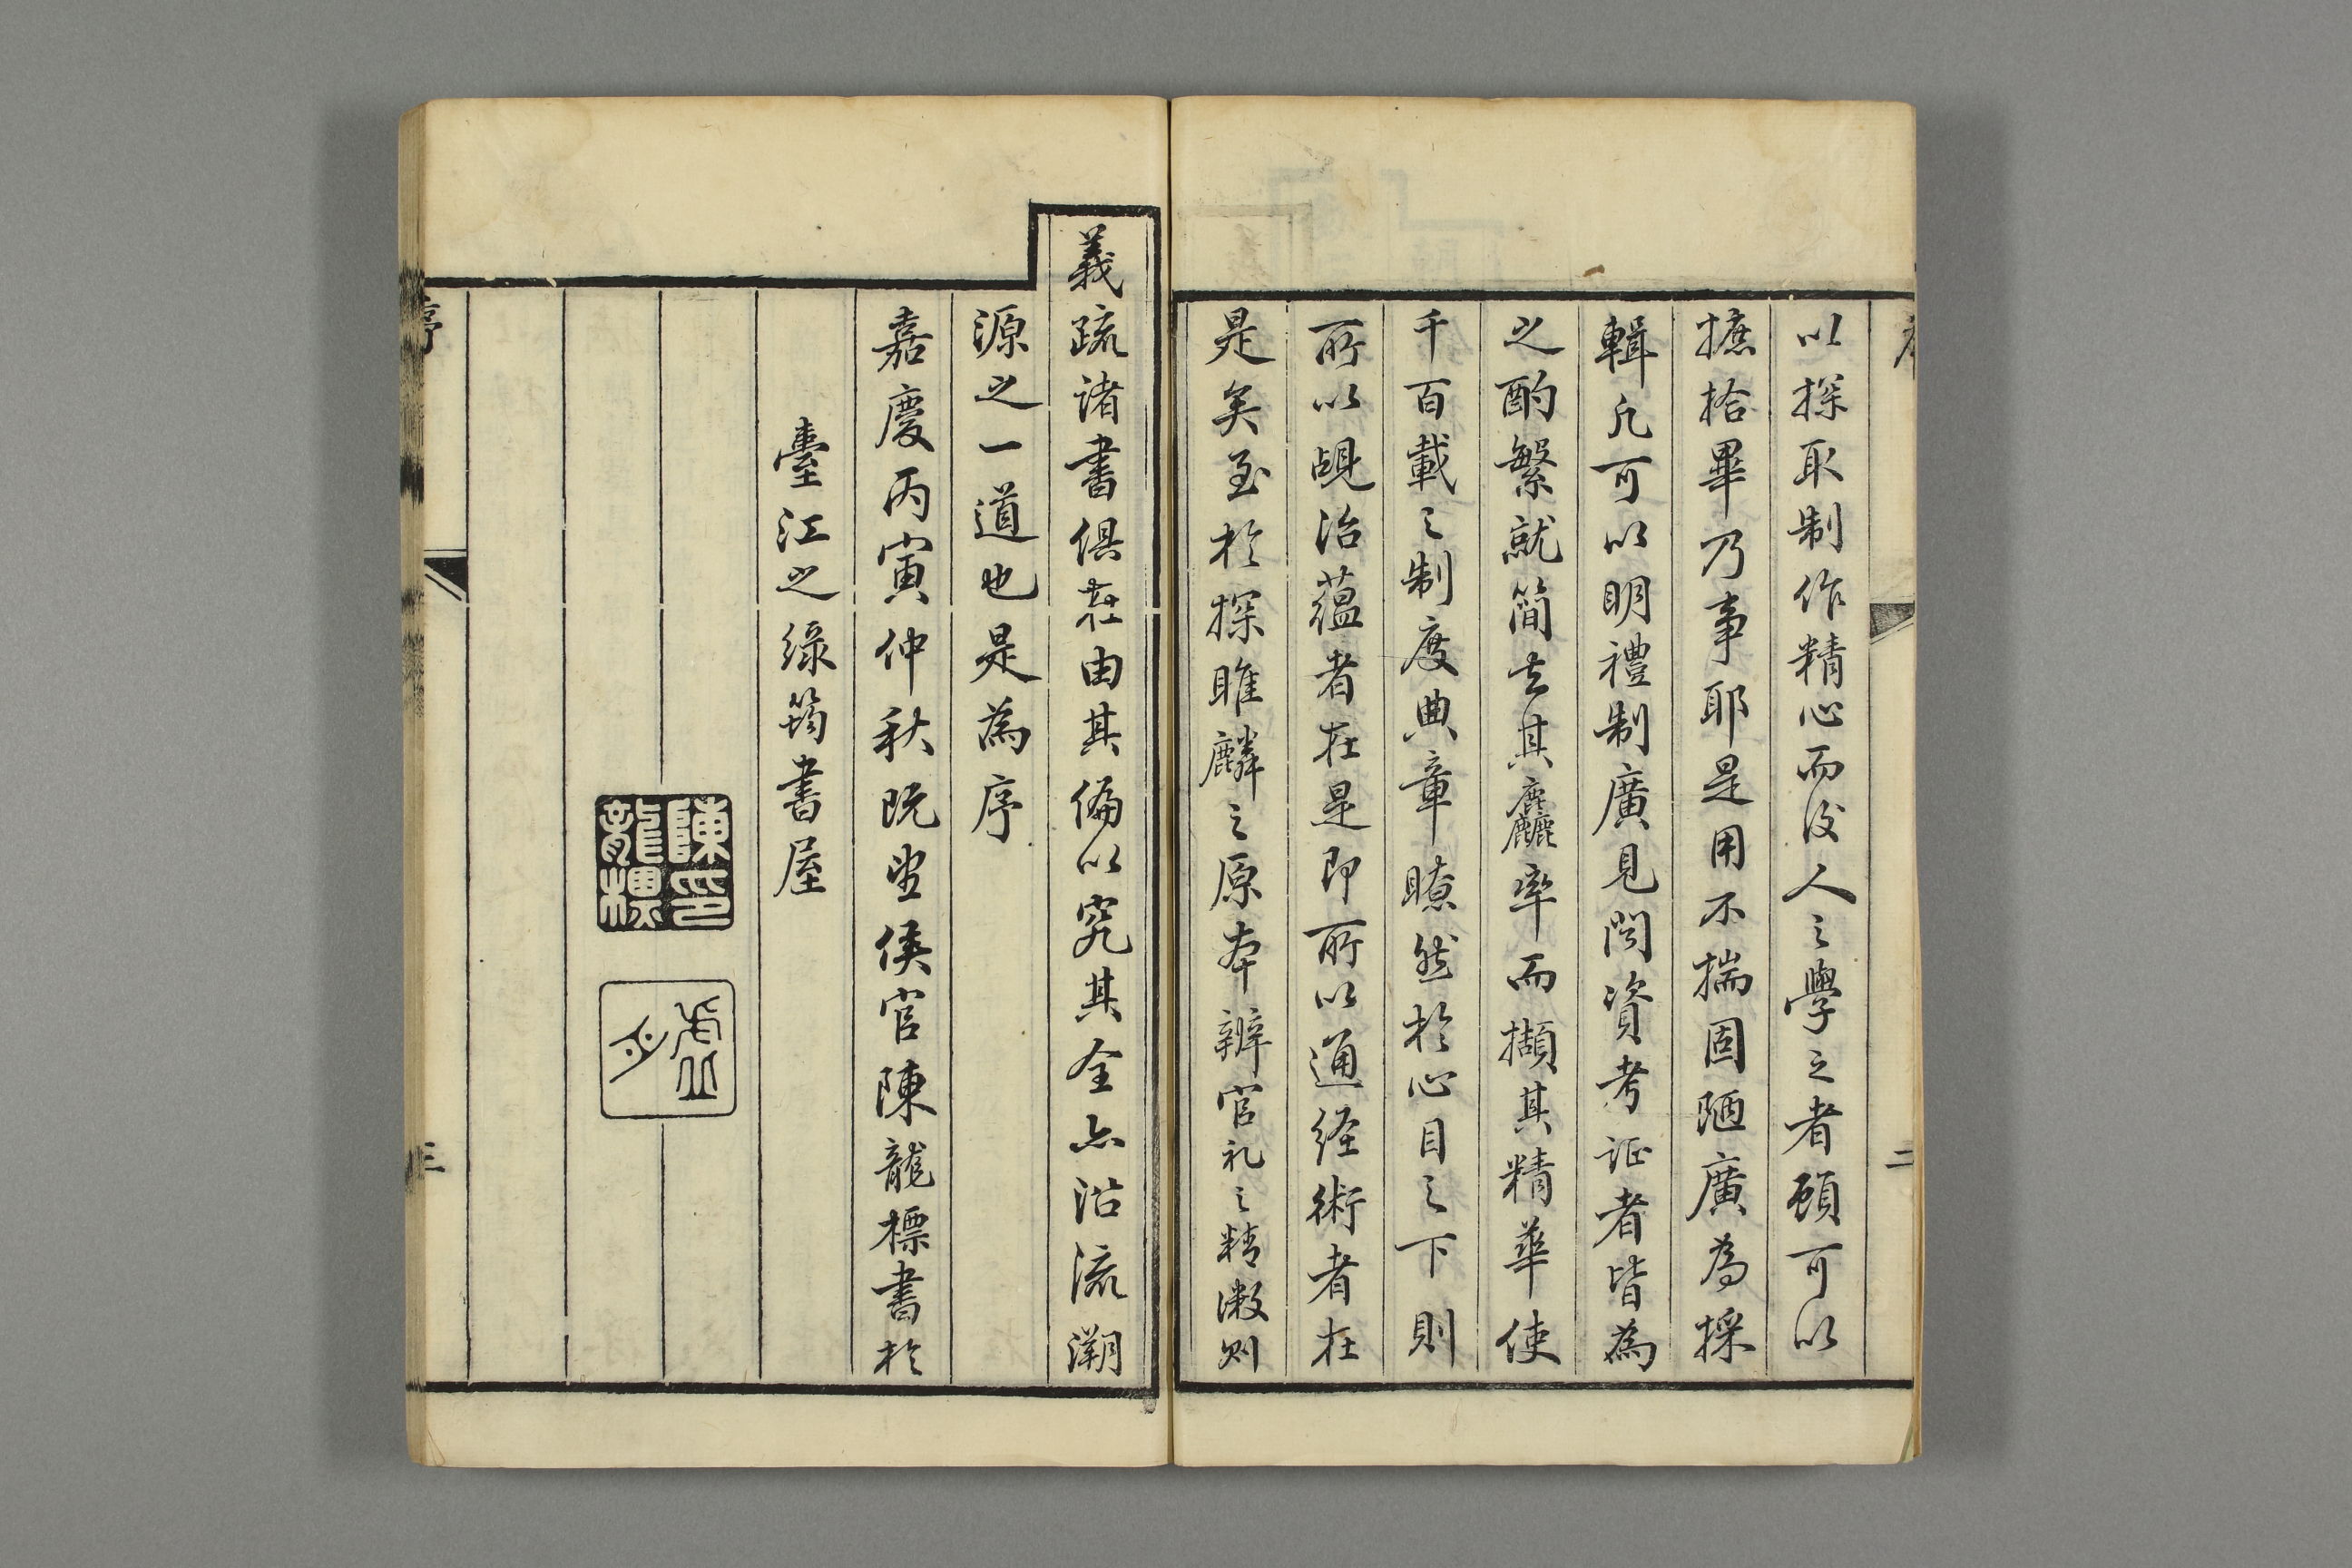 以探取制作精心而後人之學之者顧可以
摭拾畢乃事耶是用不揣固陋廣為採
輯凡可以明禮制廣見聞資考证者皆為
之酌繁就簡去其麤率而擷其精華使
千百載之制度典章瞭然於心目之下則
所以覘治蘊者在是即所以通经術者在
是矣至於探雎麟之原本辨官礼之精微则
義疏诸書俱在由其偏以究其全亦沿流溯
源之一道也是為序
嘉慶丙寅仲秋既望侯官陳龍標書於
臺江之綠筠書屋
陳印龍標
序
三
二